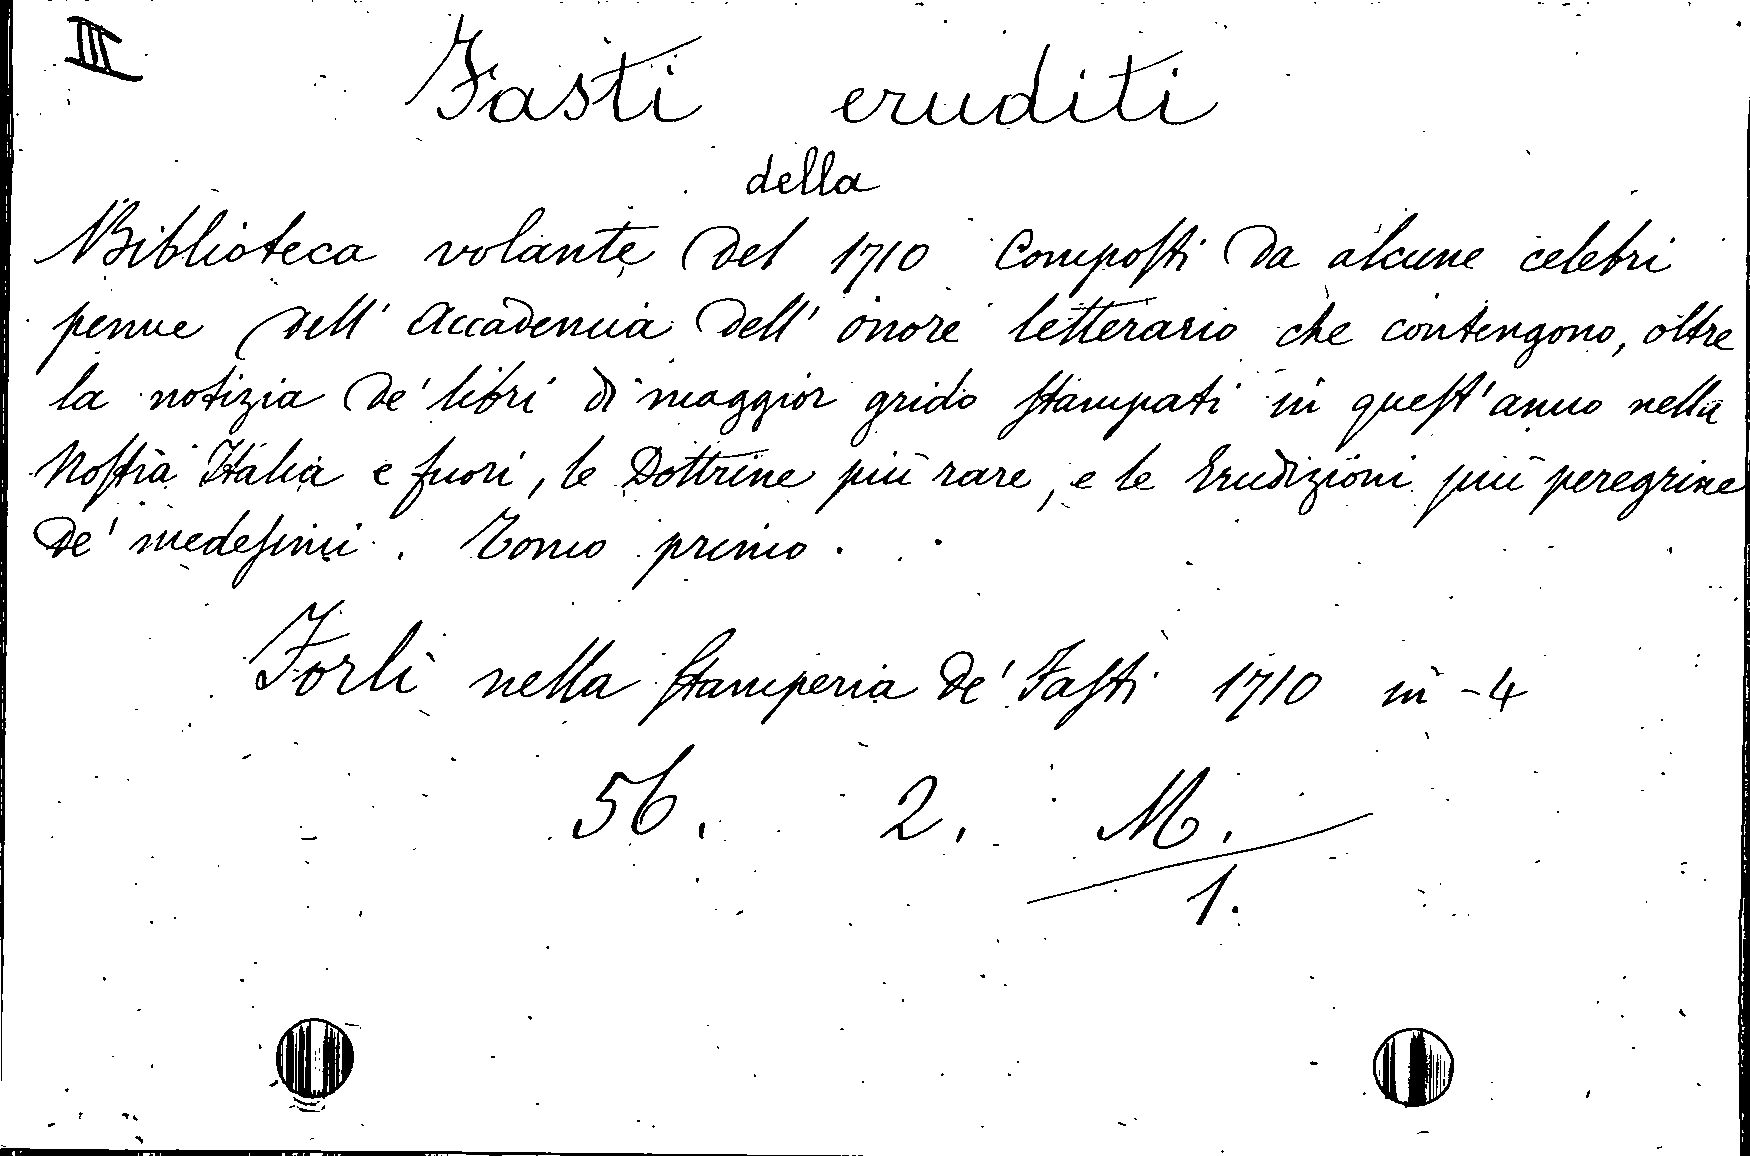 III
Fasti eruditi
della
Biblioteca volante del 1710 Compoſti da alcune celebri
penne dell' Accademia dell' onore letterario che contengono, oltre
la notizia de' libri di maggior grido ſtampati in queſt' anno nella
Noſtra Italia e fuori, le Dottrine più rare, e le Erudizioni più peregrine
de' medeſimi. Tomo primo.
Forlì nella ſtamperia de' Faſti 1710 in-4
56. 2. M.
1.